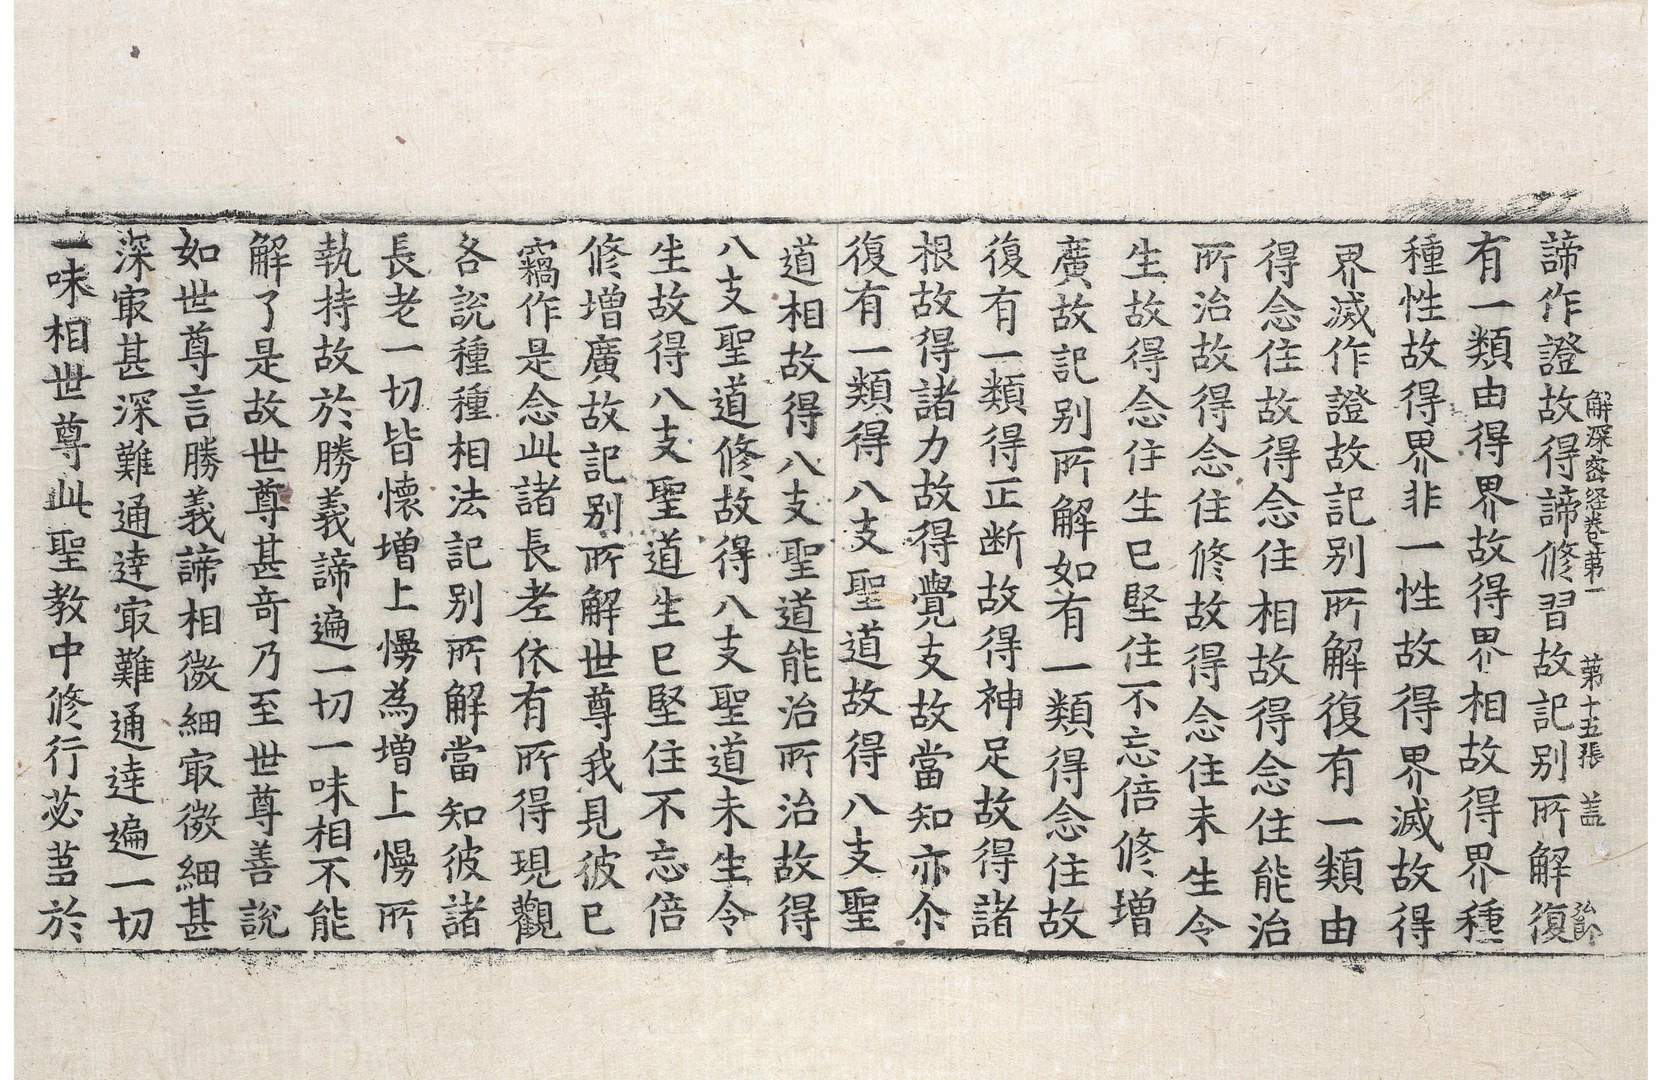 解深密経卷第一 第十五張 盖
諦作證故得諦修習故記别所解復
有一類由得界故得界相故得界種
種性故得界非一性故得界滅故得
界滅作證故記别所解復有一類由
得念住故得念住相故得念住能治
所治故得念住修故得念住未生令
生故得念住生已堅住不忘倍修增
廣故記别所解如有一類得念住故
復有一類得正断故得神足故得諸
根故得諸力故得覺支故當知亦尒
復有一類得八支聖道故得八支聖
道相故得八支聖道能治所治故得
八支聖道修故得八支聖道未生令
生故得八支聖道生已堅住不忘倍
修增廣故記别所解世尊我見彼已
竊作是念此諸長老依有所得現觀
各說種種相法記别所解當知彼諸
長老一切皆懷增上慢為增上慢所
執持故於勝義諦遍一切一味相不能
解了是故世尊甚竒乃至世尊善說
如世尊言勝義諦相微細冣微細甚
深冣甚深難通達冣難通達遍一切
一味相世尊此聖教中修行苾芻於